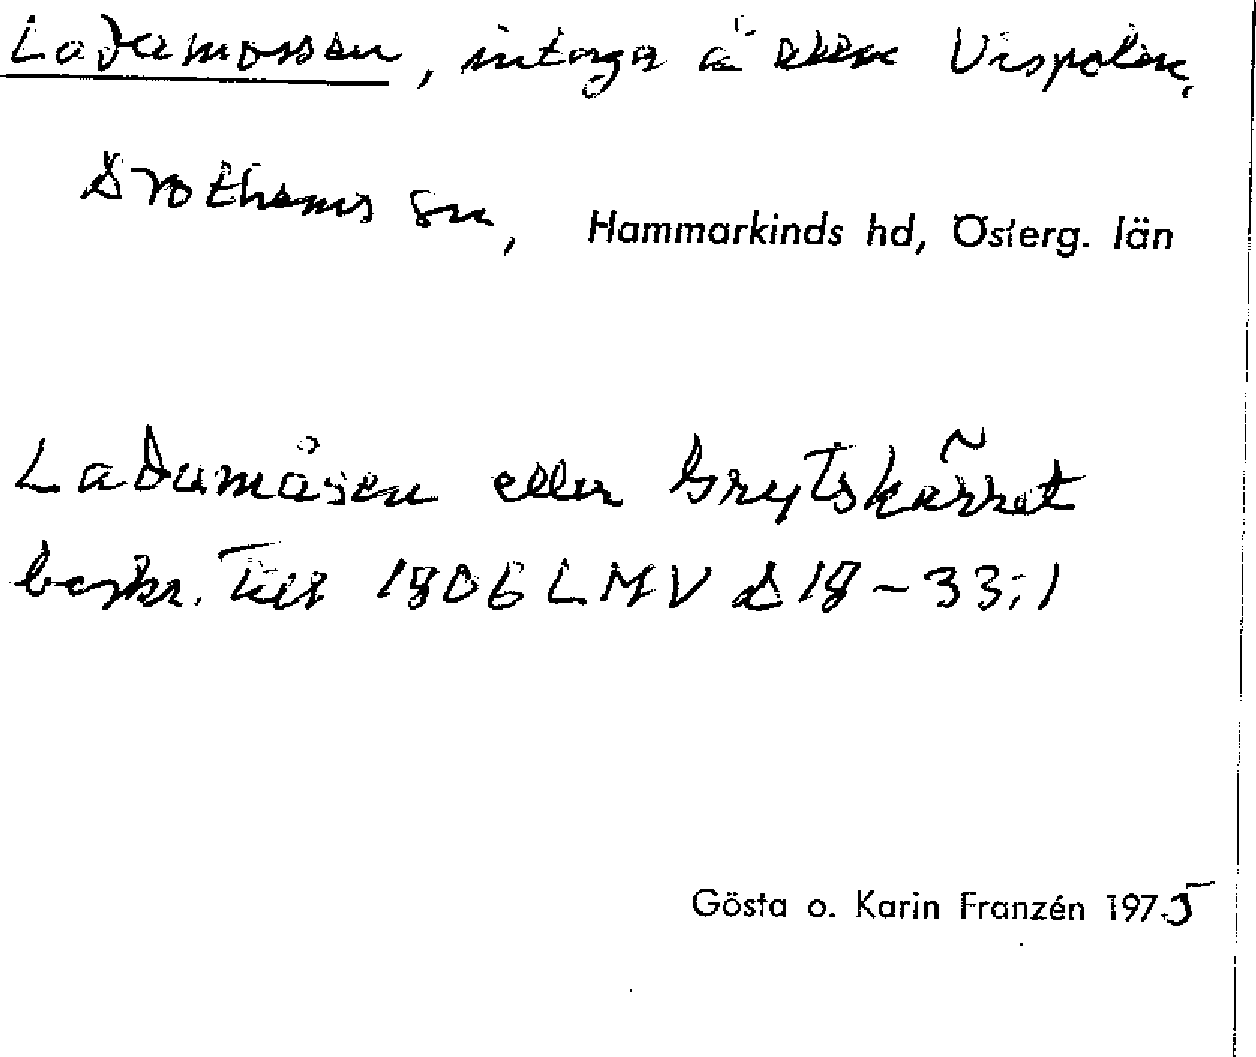 Ladumossen, intaga å ekon Vispolen,
Drothems sn, Hammarkinds hd, Österg. län
Ladumåsen eller Grytskärret
beskr. till 1806 LMV D 18-33:1
Gösta o. Karin Franzén 1975